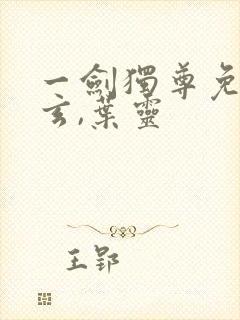 一劍獨尊免
玄,葉靈
王郢